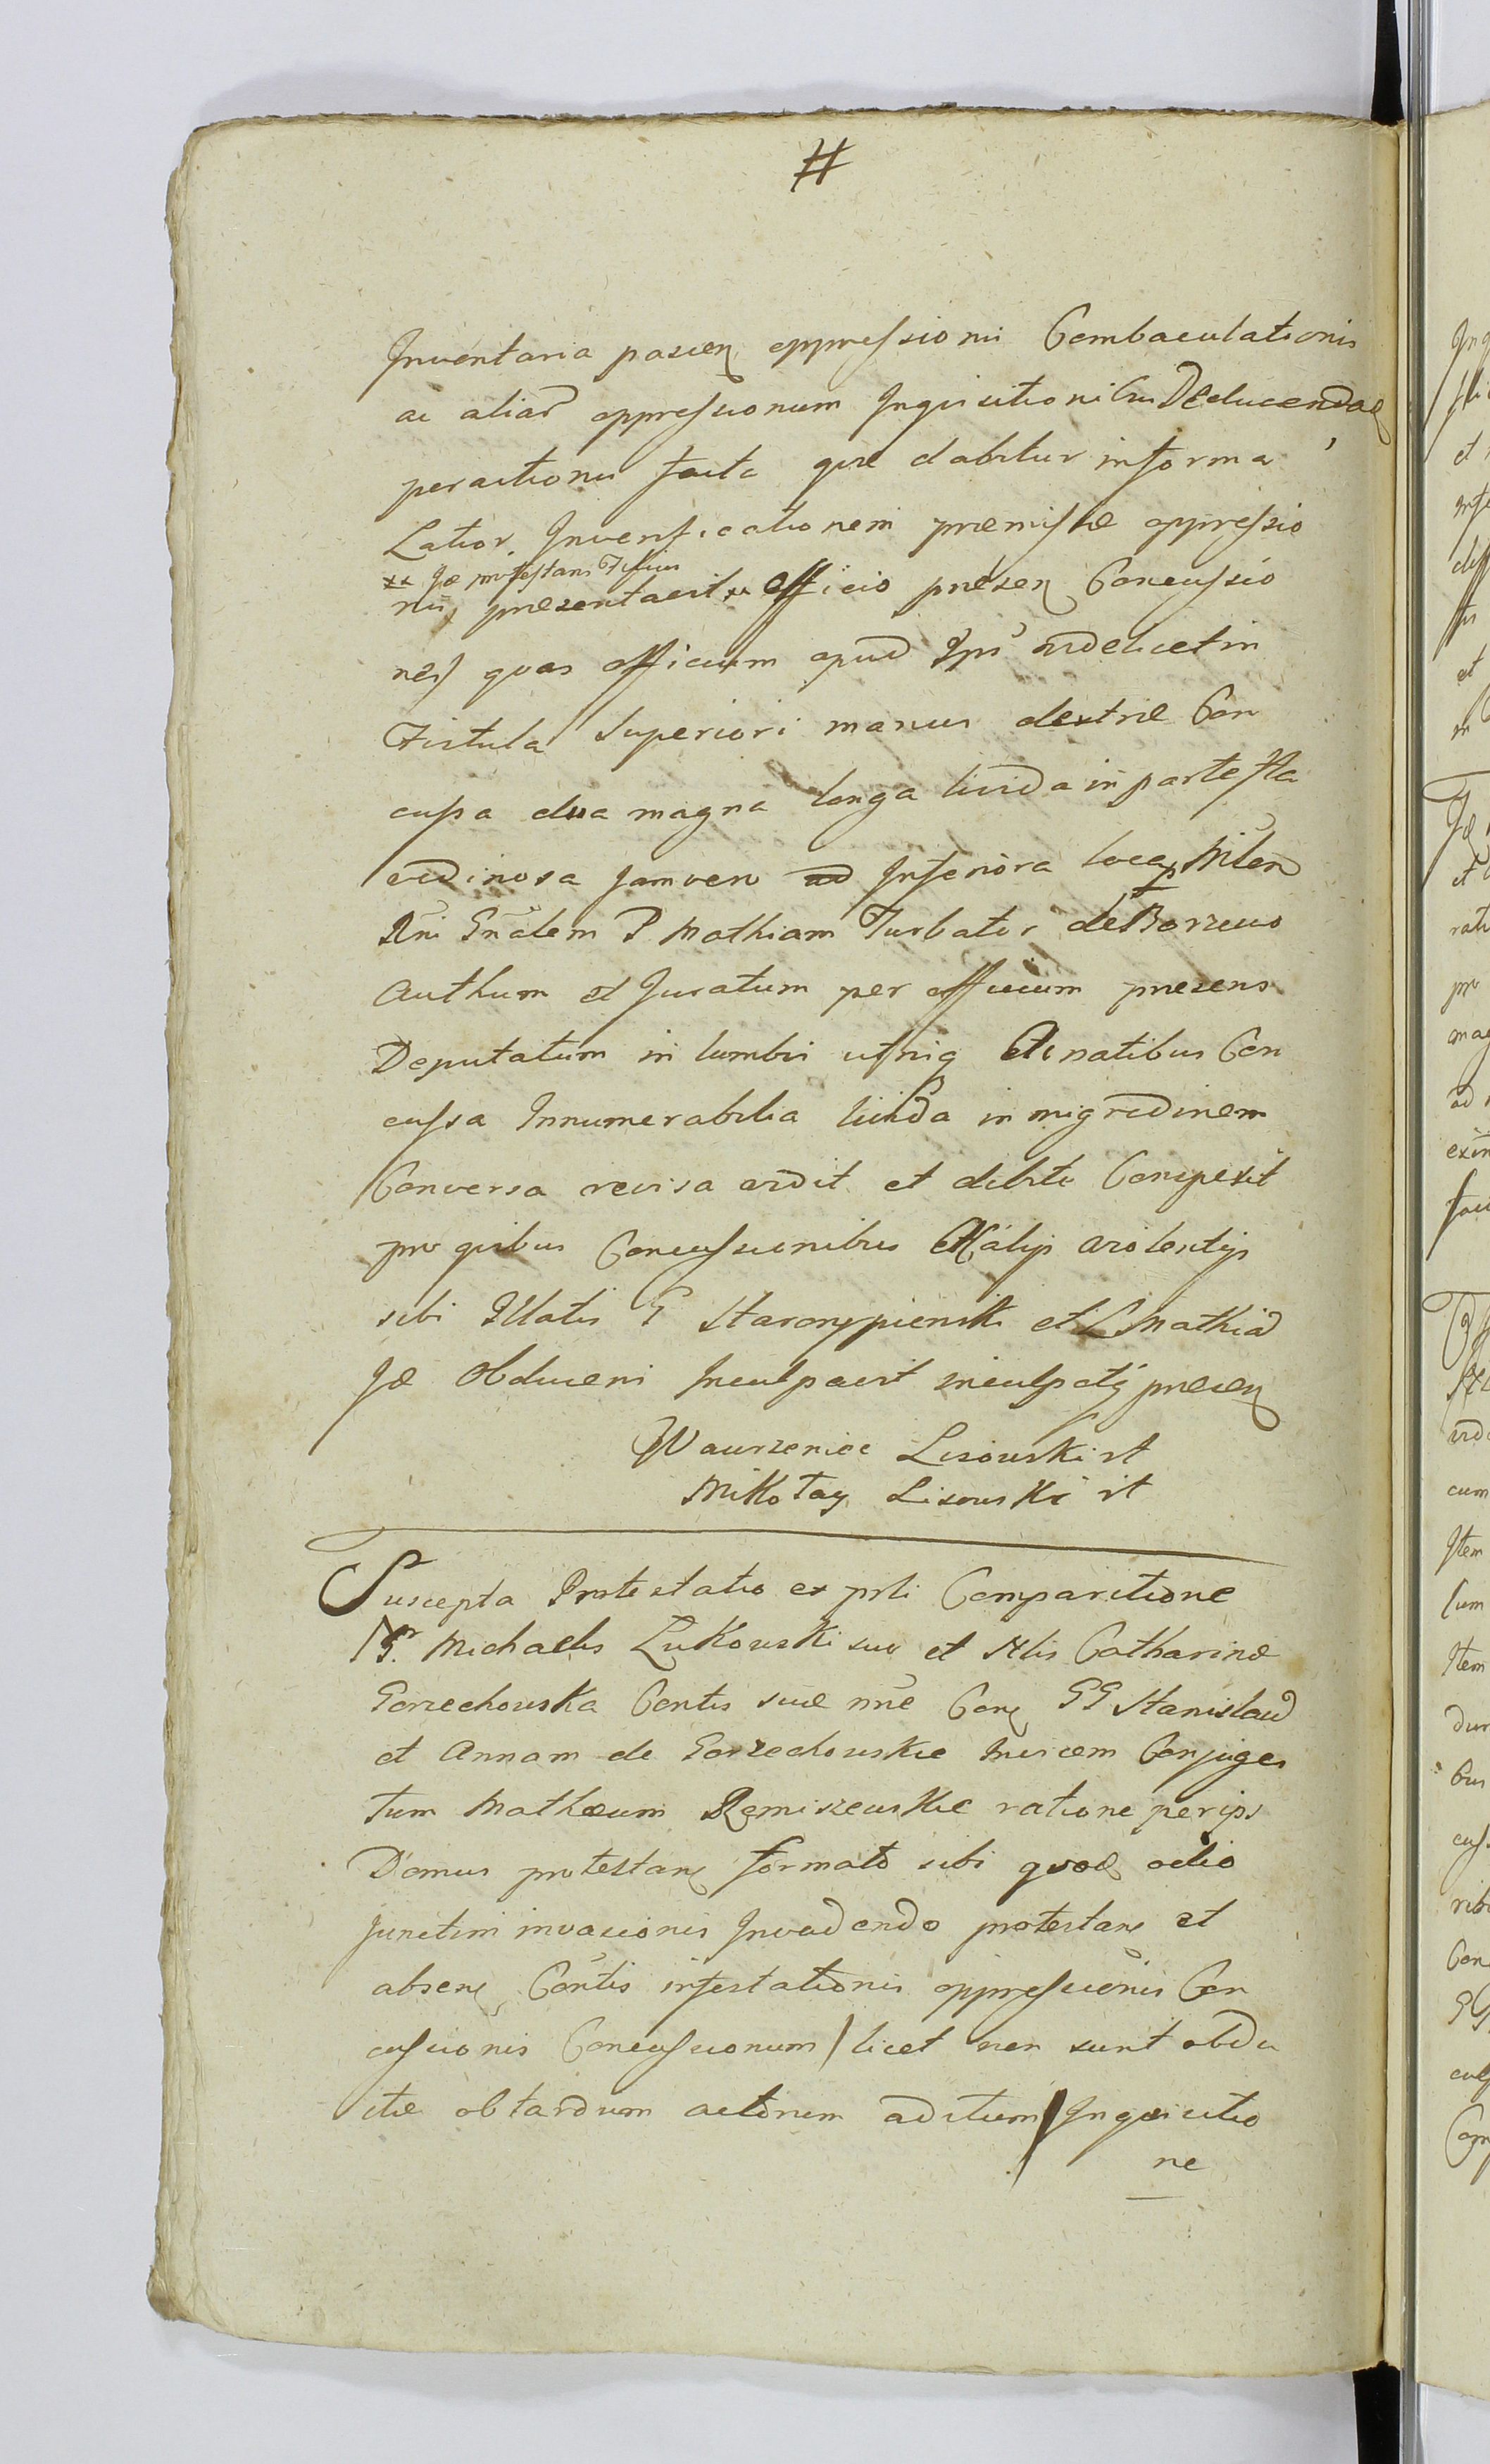 #
Inventaria posien oppressionis Combaculationis
ac aliar oppressionum Inquisitionibus Deducendae
peractionis facta quae dabitur informa
Latior. Inverificationem praemissae oppressio
xx Je protestans Filius
nis praesentavit xx officio praesen Concussio
nes quas officium apud Ips videlicet in
Fistula Superiori manus dextrae Con
cussa dua magna longa livida in parte fla
vedinosa jam vero ad Inferiora loca Mlen
Rni Gnalem P Mathiam Turbator de Borzewo
Authum et Juratum per officium praesens
Deputatum in lumbis utriq Et natibus Con
cussa Innumerabilia livida in nigredinem
Conversa revisa vidit et debite Conspexit
pro quibus Concussionibus Et alys violentys
sibi Illatis G Staroszypienski et L Mathia
Je Obducens Inculpavit inculpatq praesen
Wawrzeniec Lisowski vt
Mikołay Lisowski vt
Suscepta Protestatio ex psli Comparitione
Gr. Michaelis Łukowski suo et Nlis Catharinae
Gorzechowska Contis suae nne Con GG Stanislau
et Annam de Gorzechowskie Invicem Conjuges
tum Mathaeum Remiszewskie ratione per ips
Domus protestan formato sibi quod odio
Junctim invasionis Invadendo protestans et
absens Contis infestationis oppressionis Con
cussionis Concussionum / licet non sunt obdu
ctae ob tardum actorum aditum / Inquisitio
ne